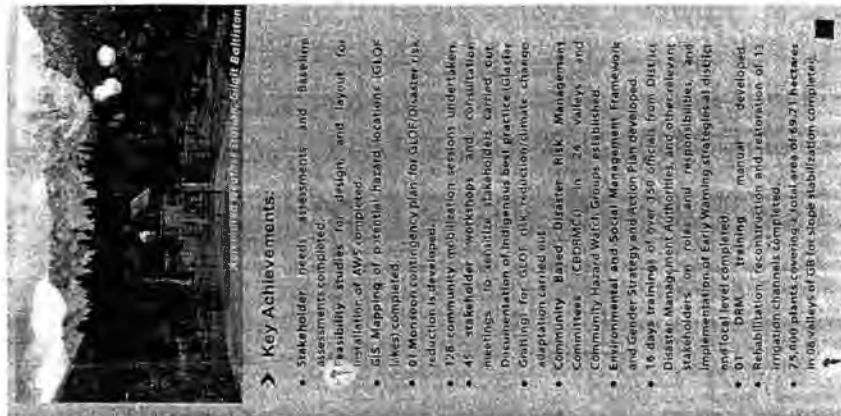 Gilgit Baltistan
> Key Achievements:
• Stakeholder needs assessments and Baseline
assessments completed.
• Feasibility studies for design and layout for
installation of AWS completed.
• GIS Mapping of potential hazard locations (GLOF
lakes) completed.
• 01 Monsoon contingency plan for GLOF/disaster risk
reduction is developed.
• 128 community mobilization sessions undertaken.
• 45 stakeholder workshops and consultation
meetings to sensitize stakeholders carried out.
Documentation of Indigenous best practice (Glacier
• Grafting) for GLOF risk reduction/climate change
adaptation carried out
• Community Based Disaster Risk Management
Committees (CBDRMCs) in 24 Valleys and
Community Hazard Watch Groups established.
• Environmental and Social Management Framework
and Gender Strategy and Action Plan developed.
• 16 days trainings of over 150 officials from District
Disaster Management Authorities, and other relevant
stakeholders on roles and responsibilities, and
implementation of Early Warning strategies at district
and local level completed
• 01 DRM training manual developed.
• Rehabilitation, reconstruction and restoration of 13
irrigation channels completed.
• 75,600 plants covering a total area of 69.21 hectares
in 08 valleys of GB for slope stabilization completed.